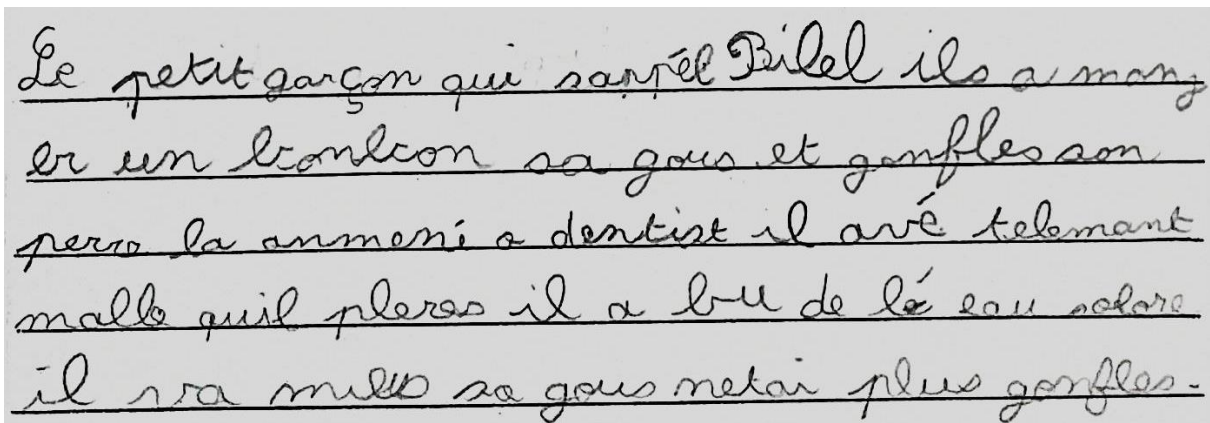 Le petit garçon qui sanpél Bilel ils a mang
er un bonbon sa gous et gonfles son
perre la anmené a dentist il avé telemant
malle quil pleres il a bu de lé eau
il va mille sa gous netai plus gonfles.